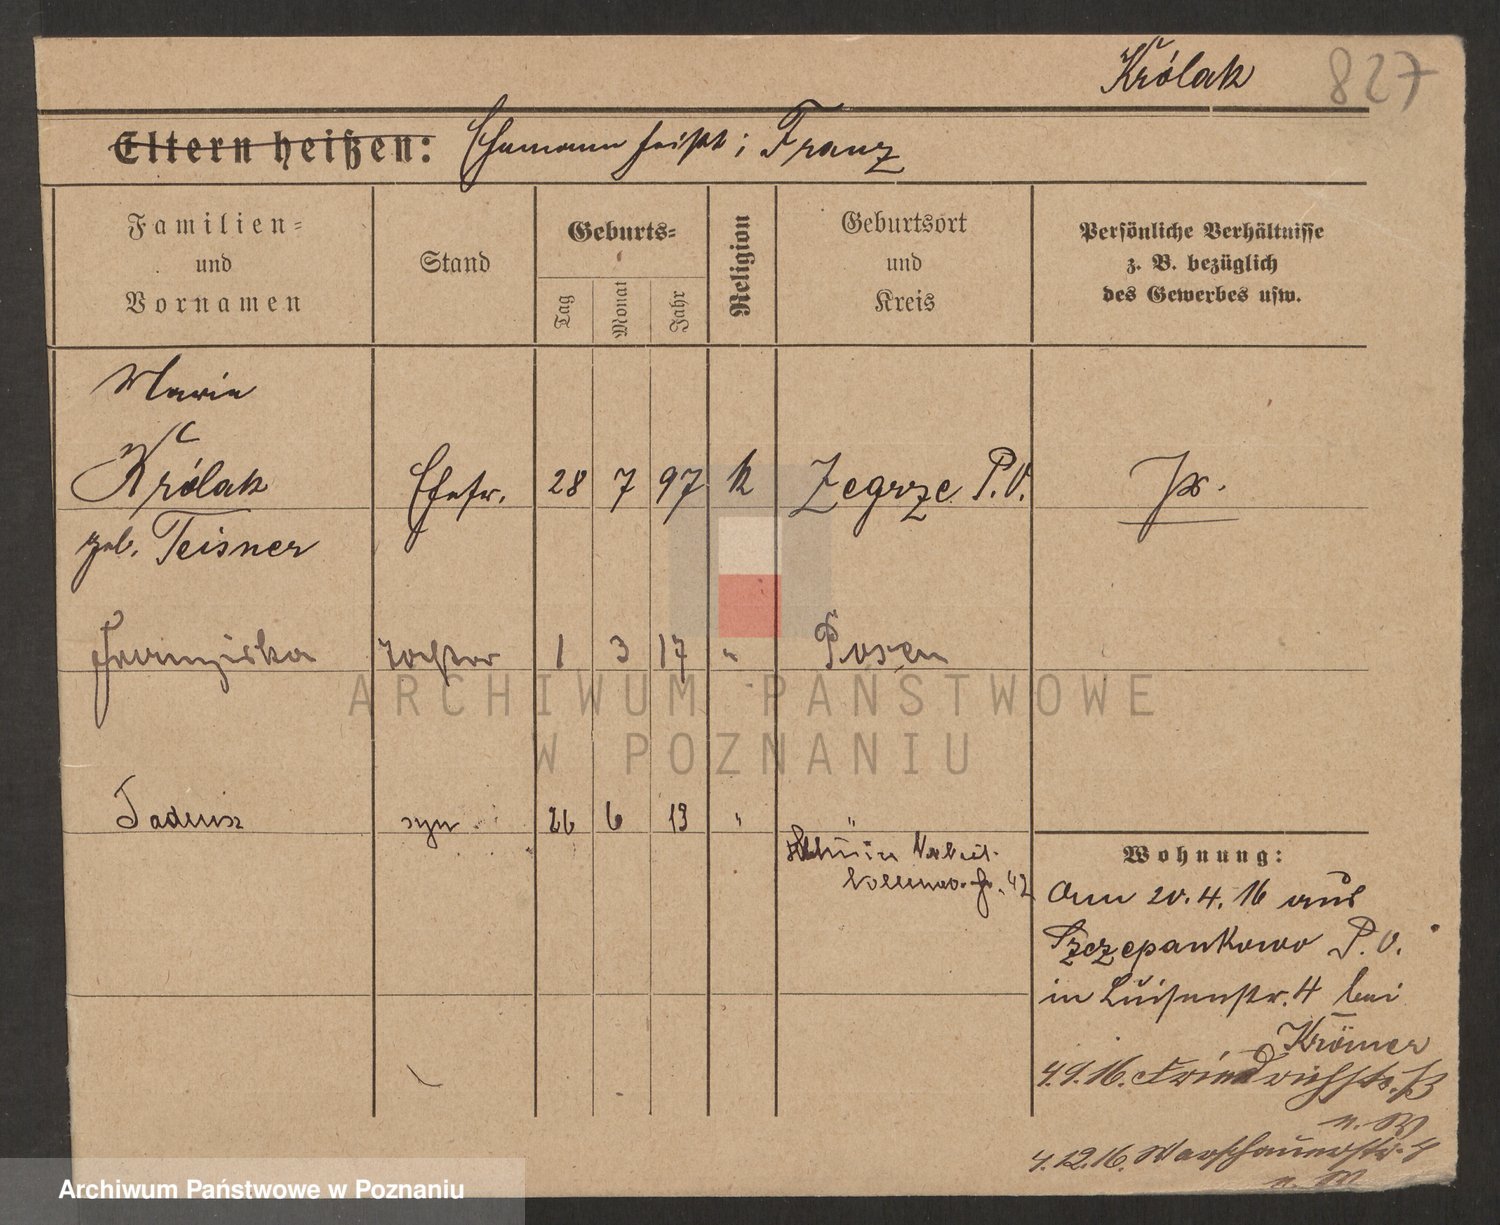 Królak 827
Eltern heißen: Ehemann heißt: Franz
Familien-
und
Vornamen
Stand
Geburts-
Tag
Monat
Jahr
Religion
Geburtsort
und
Kreis
Persönliche Verhältnisse
z. B. bezüglich
des Gewerbes usw.
Maria
Królak Ehefr. 28 7 97 k Zegrze P.O.
geb. Teisner
Franziska Tochter 1 3 17 " Posen
Tadeusz syn 26 6 19 " "
42
Wohnung:
Am 20.4.16 aus
Szczepankowo P.O.
in Luisenstr. 4 bei
Krömer
4.9.16. Friedrichstr.
n. W
4.12.16. Warschauerstr. 4
n. W
ARCHIWUM PAŃSTWOWE
W POZNANIU
Archiwum Państwowe w Poznaniu